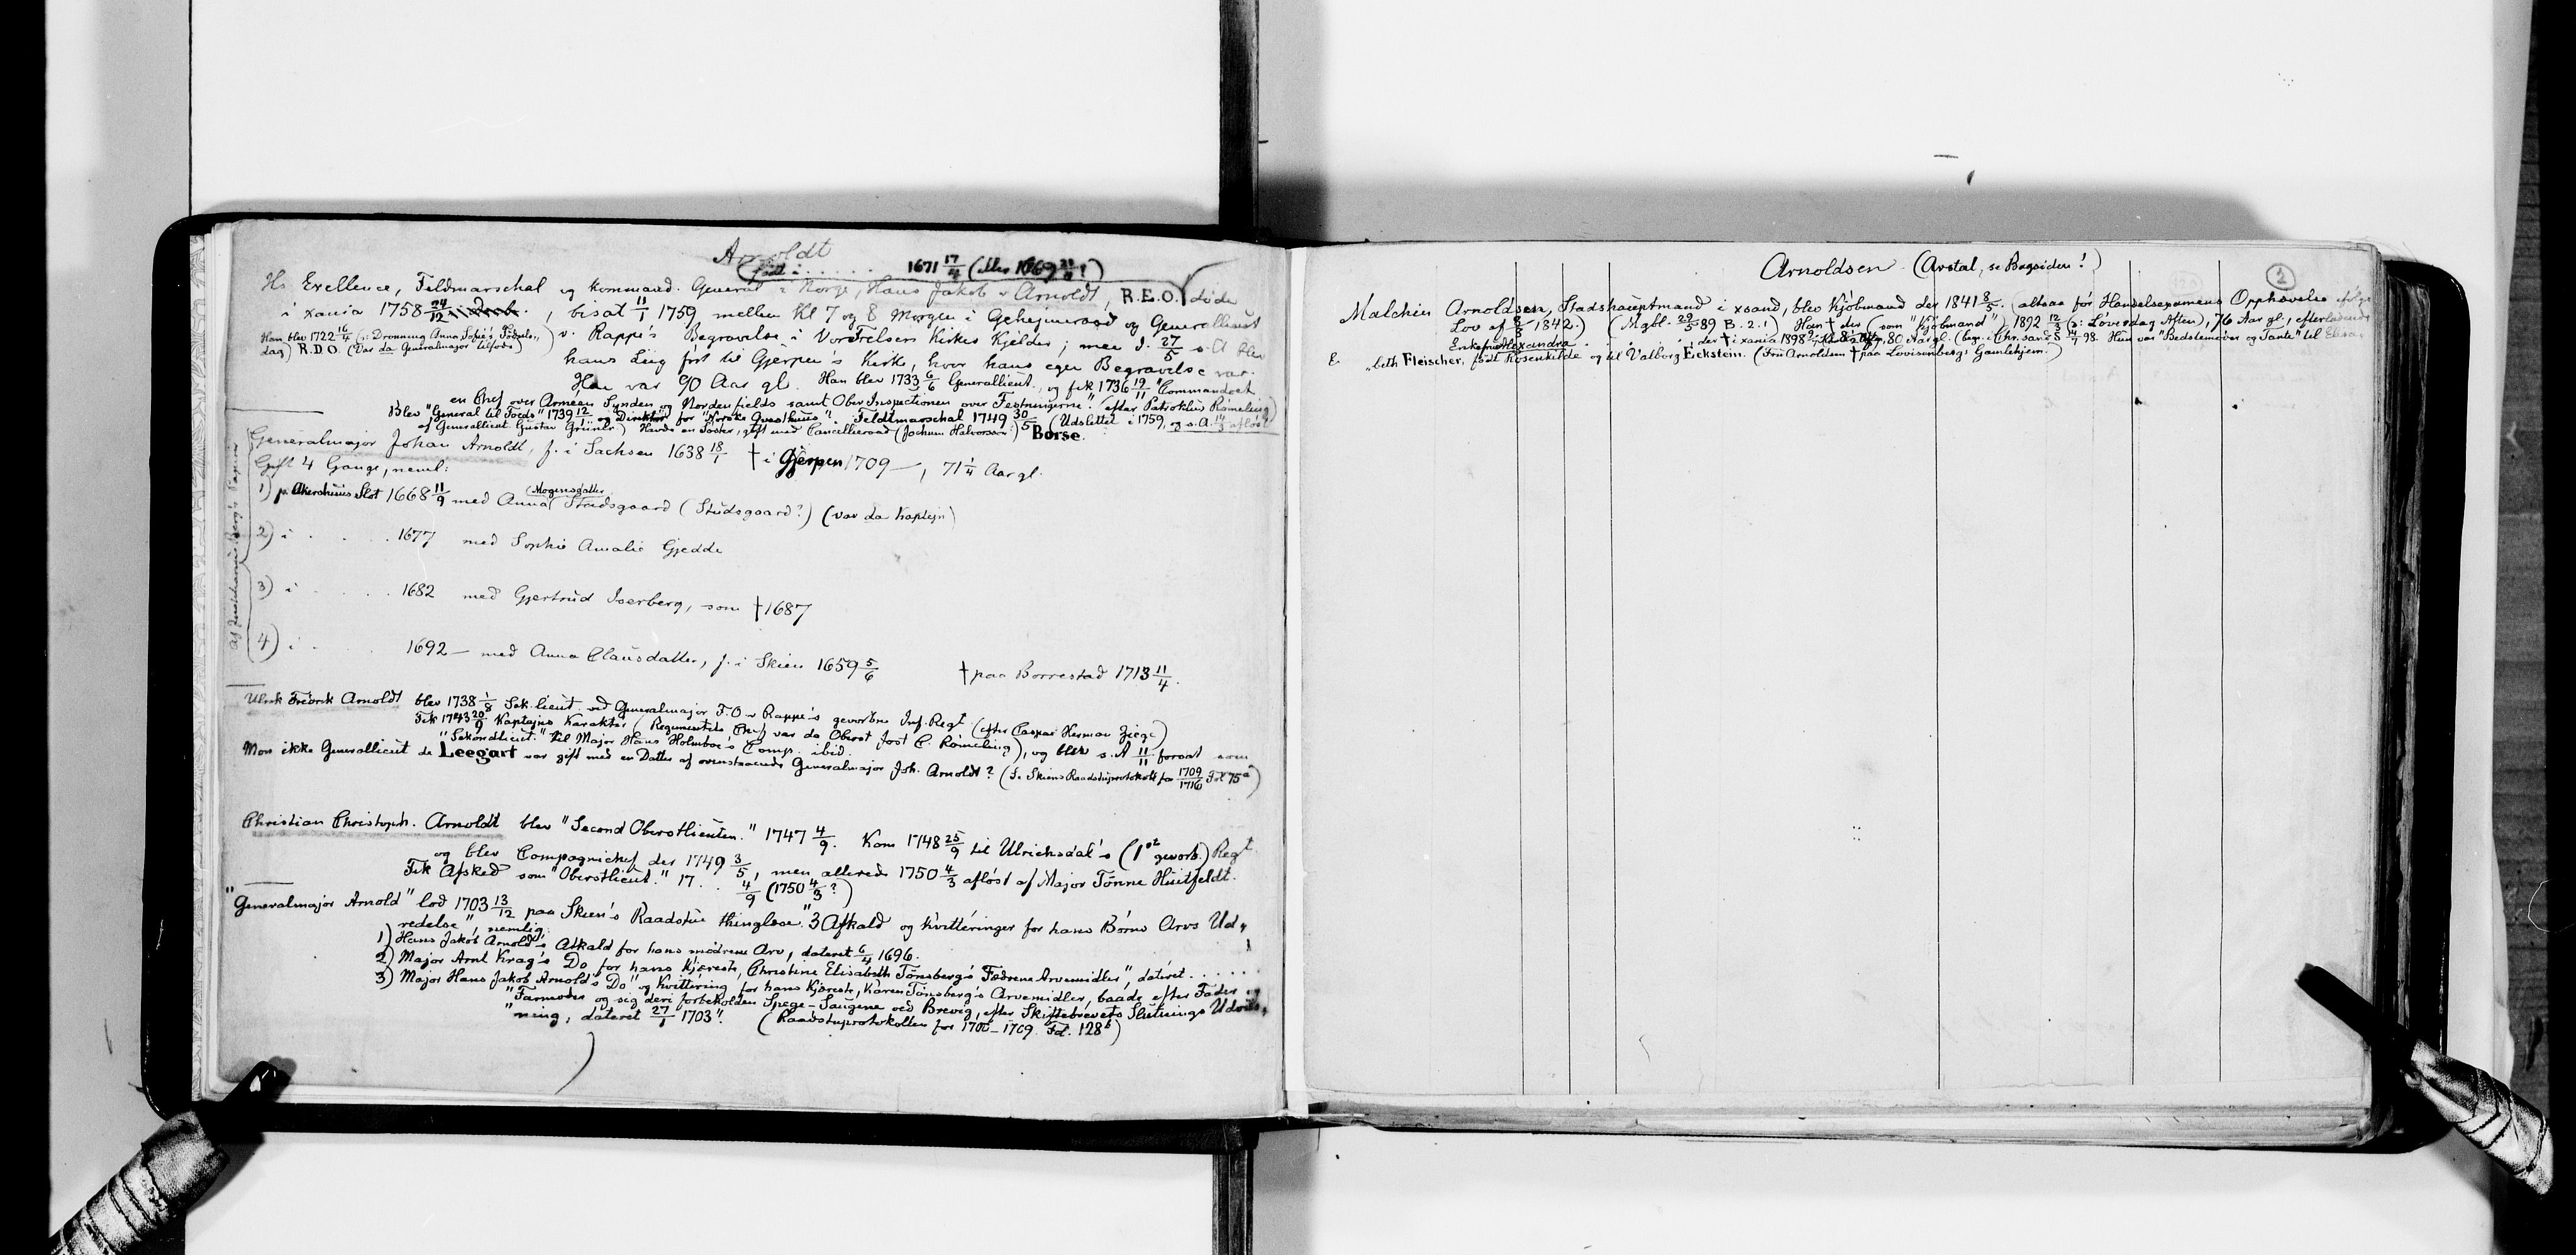 Arnoldt
(født i . . . . . 1671 17/4 (eller 1669 !)
Hs Exellence, Feldmarschal og kommand. General i Norge, Hans Jakob v Arnoldt, R.E.O. døde
i xania 1758 24/12, bisat 11/1 1759 mellem Kl 7 og 8 Morgen i Gehejmeraad og Generallieut
v. Rappe's Begravelse i VorFrelsers Kirkes Kjelder; men d. 27/5 s. A blev
Han blev 1722 16/4 (ɔ: Dronning Anna Sofie's Fødsels„
dag) R.D.O. (Var da Generalmajor tilfods)
hans Liig ført til Gjerpen's Kirke, hvor hans egen Begravelse var.
Han var 90 Aar gl. Han blev 1733 6/6 Generallieut., og fik 1736 19/11 "Commandoet
en Chef over Armeen Synden og Nordenfields samt Ober Inspectionen over Festningerne". (efter Patroklus Rømeling)
Blev "General til Foeds" 1739 12/ og Direktør for "Norske Qvæsthuus". Feldtmarschal 1749 30/5 (Udslettet i 1759, og s. A. 14/ afløst
af Generallieut. Gustav Grüner) Havde en Søster, gift med Cancelliraad (Jochum Halvorsen) Børse.
Generalmajor Johan Arnoldt, f. i Sachsen 1638 18/1 † i Gjerpen 1709 —, 71 1/4 Aar gl.
Gift 4 Gange, neml:
1) p. Akershuus Slot 1668 11/9 med Anna (Mogensdatter) Stadsgaard (Studsgaard?) (var da Kaptejn)
2) i . . . . 1677 med Sophie Amalie Gjedde
3) i . . . . . 1682 med Gjertrud Iserberg, som † 1687
4) i . . . . 1692 — med Anna Clausdatter, f. i Skien 1659 5/6 † paa Borrestad 1713 11/4.
Ulrik Fredrik Arnoldt blev 1738 1/8 Sek. lieut. ved Generalmajor F. O v Rappe's gevorbne Inf. Regt. (efter Caspar Herman Ziege)
Fik 1743 20/9 Kaptajns Karakter (Regimentets Chef var da Oberst Jost C. Rømeling), og blev s. A 11/11 forsat som
"Sekondlieut." til Major Hans Holmboe's Comp. ibid.
Mon ikke Generallieut de Leegart var gift med en Datter af ovenstaaende Generalmajor Joh. Arnoldt? (Se Skiens Raadstuprotokoll for 1709/1716 Fol 75a)
Christian Christoph. Arnoldt blev "Second Oberstlieuten." 1747 4/9. Kom 1748 25/9 til Ulrichsdal's (1ste gevorb.) Regt
og blev Compagnichef der 1749 3/5, men allerede 1750 4/3 afløst af Major Tønne Huitfeldt.
Fik Afsked som "Oberstlieut." 17 . . 4/9 (1750 4/3?)
"Generalmajor Arnold" lod 1703 13/12 paa Skien's Raadstue thinglæse "3 Afkald og Kvitteringer for hans Børns Arvs Ud„
redelse", nemlig:
1) Hans Jakob Arnold's Afkald for hans mødrene Arv, dateret 6/4 1696.
2) Major Arnt Krag's Do for hans Kjæreste, Christine Elisabeth Tønsberg's Fædrene Arvemidler", dateret . . . . . .
3) Major Hans Jakob Arnold's Do" og Kvittering for hans Kjæreste, Karen Tønsberg's Arvemidler, baade efter Fader og
"Farmoder og sig deri forbeholden Spege-Saugene ved Brevig, efter Skiftebrevets Slutnings Udviis„
"ning, dateret 27/1 1703". (Raadstuprotokollen for 1700–1709. Fol. 128b)
Arnoldsen (Avstal, se Bagsiden!)
2
Malchin Arnoldsen, Stadshauptmand i xsand, blev Kjøbmand der 1841 8/5. (altsaa før Handelsexamens Ophævelse ifølge
Lov af 8/8 1842.) (Mgbl. 29/5 89 B. 2.!) Han † der (som "Kjøbmand") 1892 12/3 (ɔ: Løverdag Aften), 76 Aar gl., efterladende
Enkefru Alexandra . . . . . der † i xania 1898, 80 Aar gl. (begr. i Chr. sand S 14/7 98. Hun var "Bedstemoder og Tante" til Elisa„
E „beth Fleischer, født Rosenkilde og til Valborg Eckstein. (Fru Arnoldsen † paa Lovisenberg's Gamlehjem.)